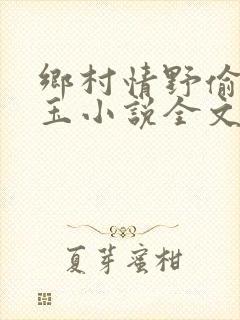 鄉村情野偷
玉小説全文
夏芽蜜柑